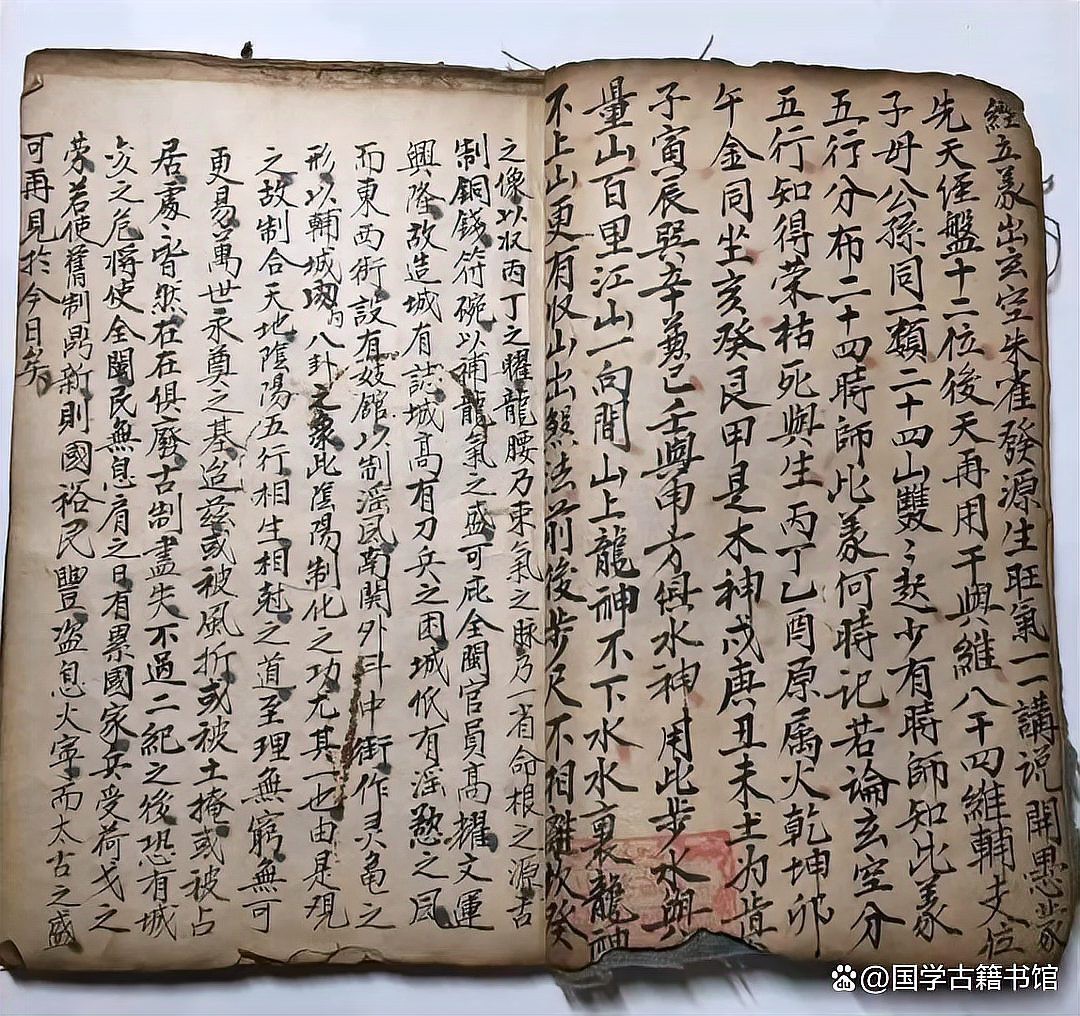 經立义出玄空朱雀發源生旺氣一一講説開愚蒙
先天經盤十二位後天再用干與維八干四維輔支位
子母公孫同一類二十四山雙々起少有時師知此義
五行分布二十四時師此義何時記若論玄空分
五行知得荣枯死與生丙丁乙酉原属火乾坤卯
午金同坐亥癸艮甲是木神戌庚丑未土为真
子寅辰巽辛兼巳壬與申方俱水神用此步水與
量山百里江山一向間山上龍神不下水水裏龍神
不上山更有收山出煞法前後步尺不相離改癸
之像以收丙丁之曜龍腰乃束氣之脉乃一省命根之源古
制銅錢符碗以補龍氣之盛可庇全閩官員髙耀文運
興隆改造城有誌城髙有刀兵之困城低有滛慾之風
而東西術設有妓館以制滛風南関外斗中街作灵亀之
形以輔城内八卦之象此隂陽制化之功尤其一也由是观
之故制合天地隂陽五行相生相尅之道至理無窮無可
更易萬世永尊之基迨兹或被風折或被土掩或被占
居處々皆然在在俱廢古制盡失不過二紀之後恐有城
亥之危將使全閩民無息肩之日有累國家兵受荷戈之
荣若使舊制鼎新則國裕民豐盜息火寧而太古之盛
可再見於今日矣
@国学古籍书馆